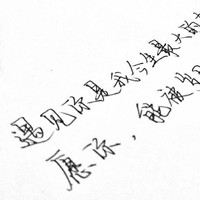 遇见你是我今生最大的
愿你，能被